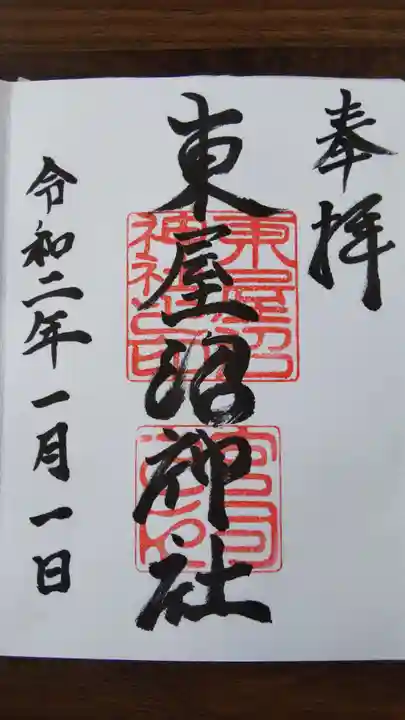 奉拝
東屋沼神社
令和二年一月一日
東屋沼
神社之印
宮司
之印